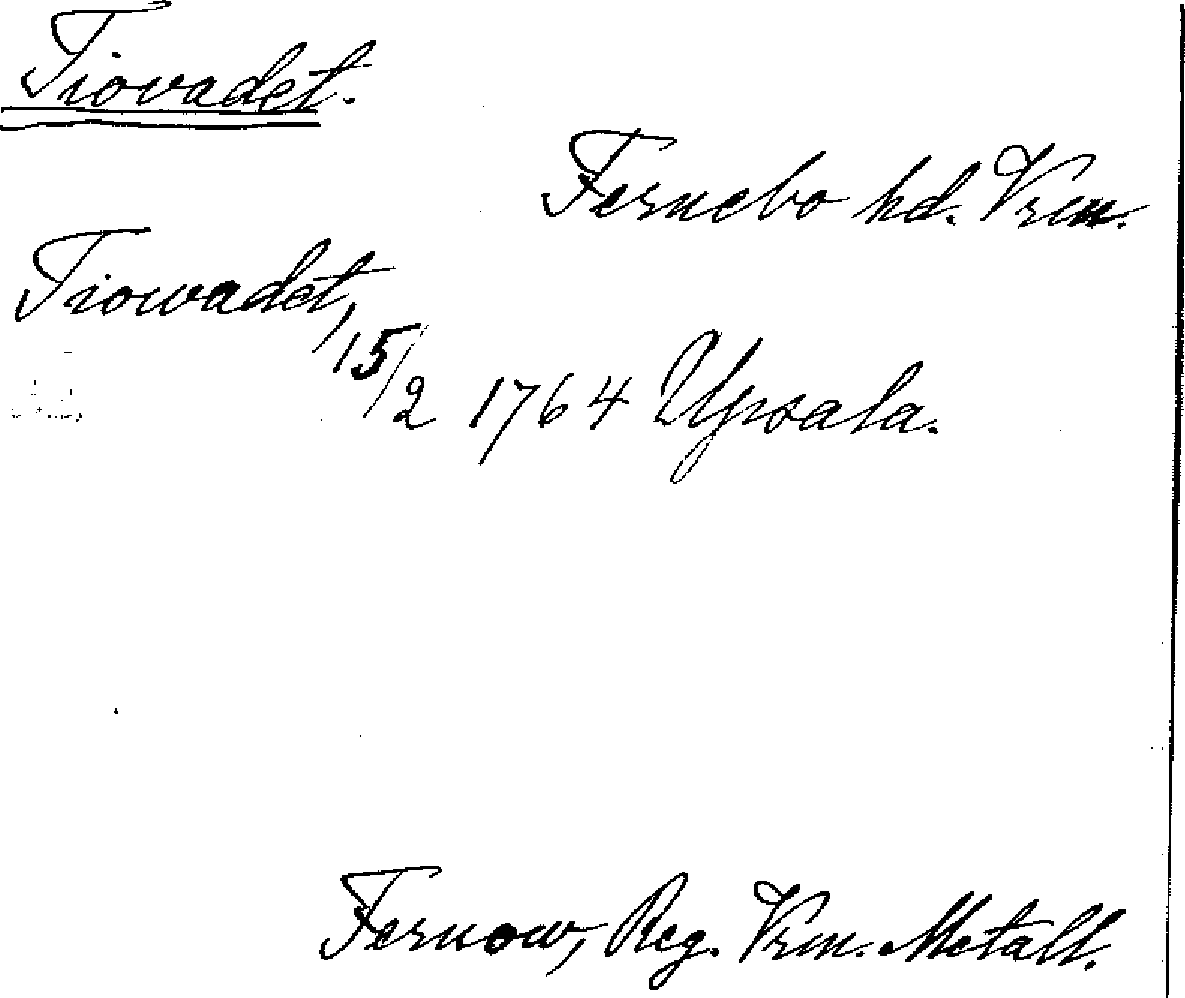 Tiovadet.
Fernebo hd. Vrm.
Tiowadet,
15/2 1764 Upsala.
Fernow, Reg. Vrm. Metall.